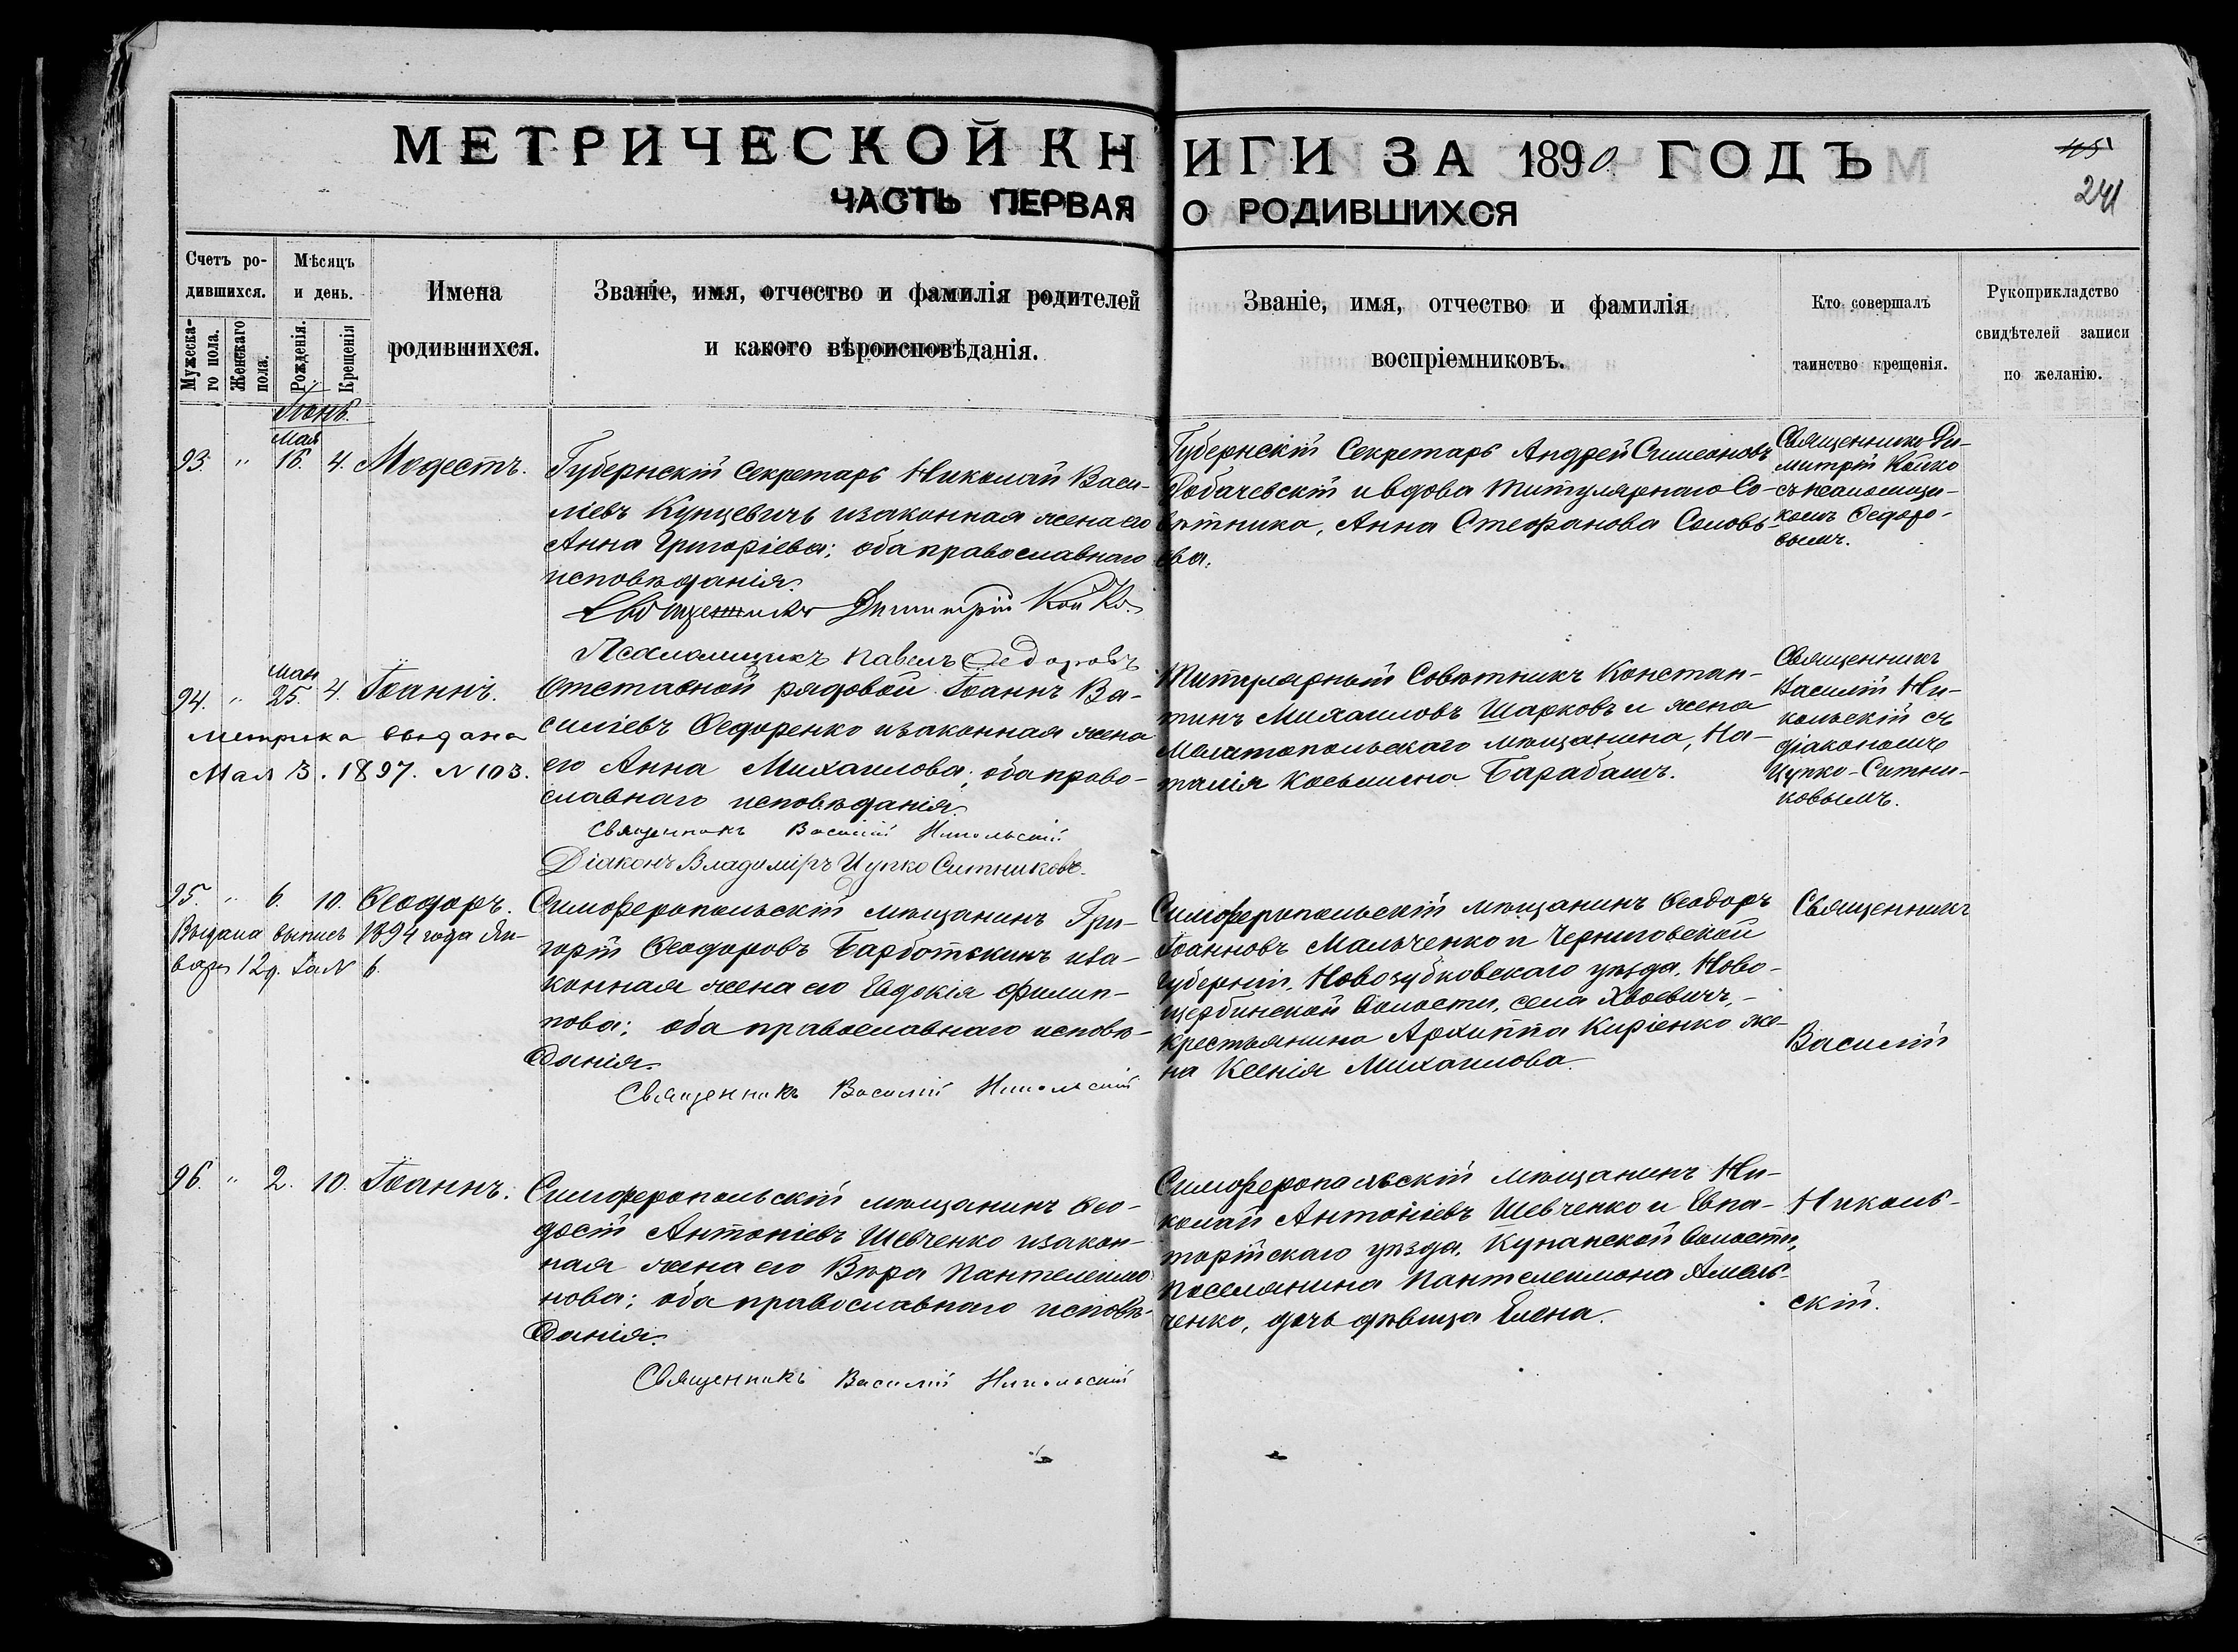 МЕТРИЧЕСКОЙ КНИГИ ЗА 1890 ГОДЪ
ЧАСТЬ ПЕРВАЯ О РОДИВШИХСЯ
115
241
Счетъ ро-
дившихся.
Мужеска-
го пола.
Женскаго
пола.
Мѣсяцъ
и день.
Рожденія.
Крещенія
Имена
родившихся.
Званіе, имя, отчество и фамилія родителей
и какого вѣроисповѣданія.
Званіе, имя, отчество и фамилія
воспріемниковъ.
Кто совершалъ
таинство крещенія.
Рукоприкладство
свидѣтелей записи
по желанію.
Іюнь.
Мая
93. " 16. 4. Модестъ.
Губернскій Секретарь Николай Васи-
ліевъ Кунцевичъ и законная жена его
Анна Григоріева; оба православнаго
исповѣданія.
Священникъ Димитрій Койко
Псаломщикъ Павелъ Ѳедоровъ
Губернскій Секретарь Андрей Симеоновъ
Лобачевскій и вдова Титулярнаго Со-
вѣтника, Анна Стефанова Соловь-
ева.
Священникъ Ди-
митрій Койко
съ псаломщи-
комъ Ѳедоро-
вымъ.
Мая
94. " 25. 4. Іоаннъ.
Метрика выдана
Мая 13. 1897. N 103.
Отставной рядовой Іоаннъ Ва-
силіевъ Ѳедоренко и законная жена
его Анна Михаилова; оба право-
славнаго исповѣданія.
Священникъ Василій Никольскій
Діаконъ Владиміръ Цупко Ситниковъ.
Титулярный Совѣтникъ Констан-
тинъ Михаиловъ Шарковъ и жена
Мелитопольскаго мѣщанина, На-
талія Косьмина Барабашъ.
Священникъ
Василій Ни-
кольскій съ
діакономъ
Цупко-Ситни-
ковымъ.
95. " 6. 10. Ѳеодоръ.
Выдана выпись 1894 года Ян-
варя 12 д. за N 6.
Симферопольскій мѣщанинъ Гри-
горій Ѳеодоровъ Барботскинъ и за-
конная жена его Евдокія Филип-
пова; оба православнаго исповѣ-
данія.
Священникъ Василій Никольскій
Симферопольскій мѣщанинъ Ѳеодоръ
Іоанновъ Мальченко и Черниговской
губерніи, Новозубковскаго уѣзда, Ново-
щербинской волости, села Хвоевичъ,
крестьянина Архиппа Киріенко же-
на Ксенія Михаилова.
Священникъ
Василій
96. " 2. 10. Іоаннъ.
Симферопольскій мѣщанинъ Ѳео-
досій Антоніевъ Шевченко и закон-
ная жена его Вѣра Пантелеимо-
нова; оба православнаго исповѣ-
данія.
Священникъ Василій Никольскій
Симферопольскій мѣщанинъ Ни-
колай Антоніевъ Шевченко и Евпа-
торійскаго уѣзда, Кунанской волости,
поселянина Пантелеимона Амель-
ченко, дочь дѣвица Елена.
Николь-
скій.